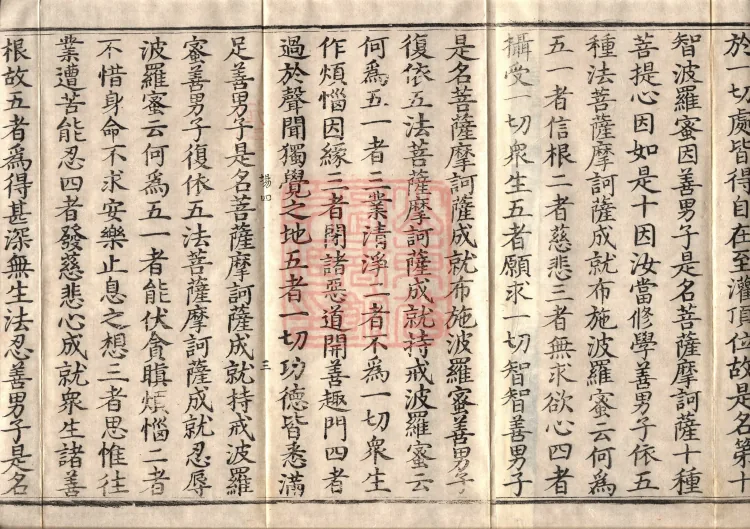 於一切處皆得自在至灌頂位故是名第十
智波羅蜜因善男子是名菩薩摩訶薩十種
菩提心因如是十因汝當修學善男子依五
種法菩薩摩訶薩成就布施波羅蜜云何為
五一者信根二者慈悲三者無求欲心四者
攝受一切衆生五者願求一切智智善男子
是名菩薩摩訶薩成就布施波羅蜜善男子
復依五法菩薩摩訶薩成就持戒波羅蜜云
何為五一者三業清淨二者不為一切衆生
作煩惱因緣三者閉諸惡道開善趣門四者
過於聲聞獨覺之地五者一切功德皆悉滿
場四 三
足善男子是名菩薩摩訶薩成就持戒波羅
蜜善男子復依五法菩薩摩訶薩成就忍辱
波羅蜜云何為五一者能伏貪瞋煩惱二者
不惜身命不求安樂止息之想三者思惟往
業遭苦能忍四者發慈悲心成就衆生諸善
根故五者為得甚深無生法忍善男子是名